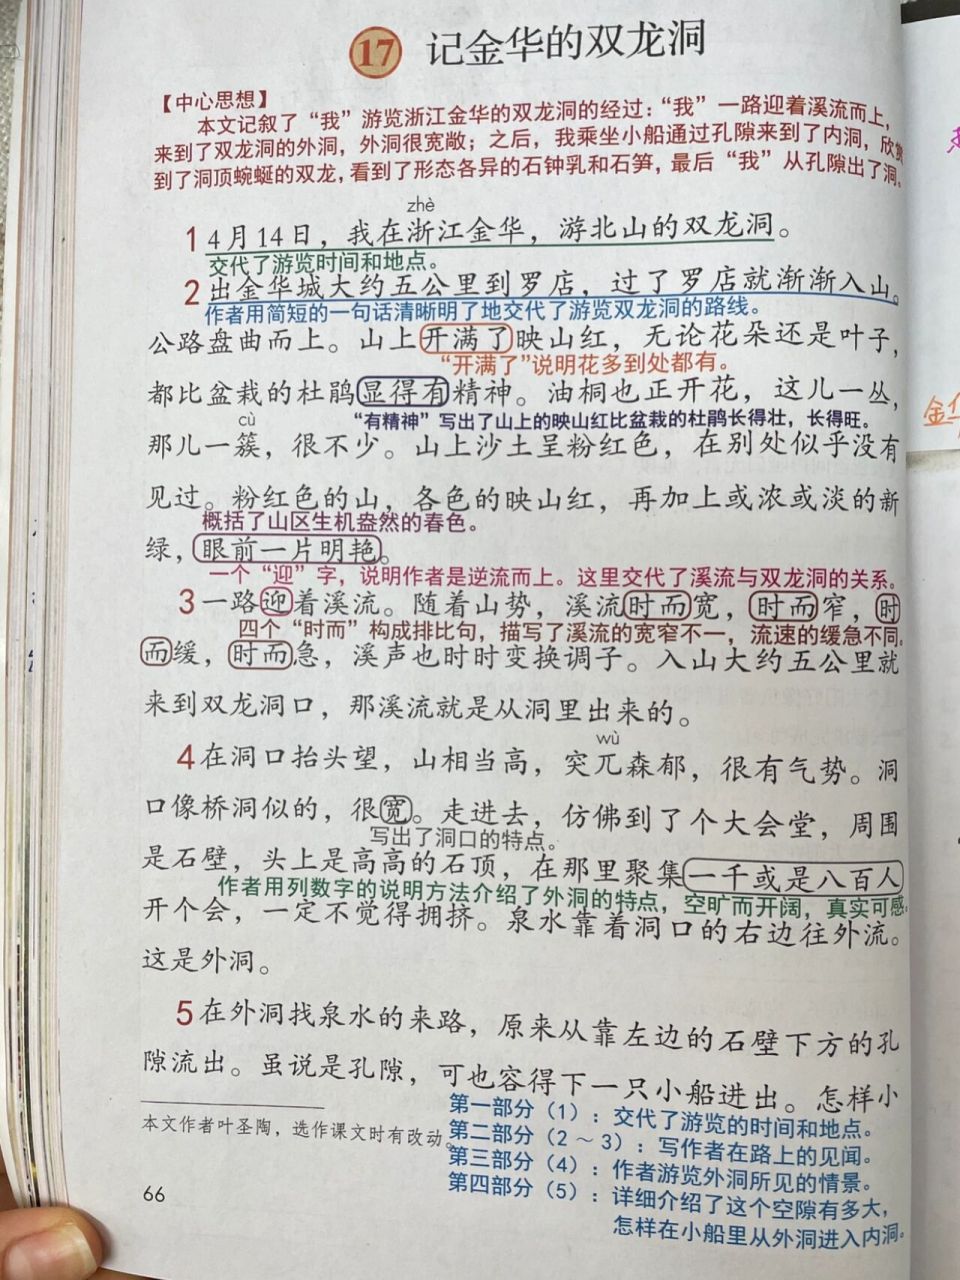 17 记金华的双龙洞
【中心思想】
本文记叙了“我”游览浙江金华的双龙洞的经过：“我”一路迎着溪流而上，
来到了双龙洞的外洞，外洞很宽敞；之后，我乘坐小船通过孔隙来到了内洞，欣赏
到了洞顶蜿蜒的双龙，看到了形态各异的石钟乳和石笋，最后“我”从孔隙出了洞。
zhè
1 4月14日，我在浙江金华，游北山的双龙洞。
交代了游览时间和地点。
2 出金华城大约五公里到罗店，过了罗店就渐渐入山。
作者用简短的一句话清晰明了地交代了游览双龙洞的路线。
公路盘曲而上。山上开满了映山红，无论花朵还是叶子，
“开满了”说明花多到处都有。
都比盆栽的杜鹃显得有精神。油桐也正开花，这儿一丛，
cù
“有精神”写出了山上的映山红比盆栽的杜鹃长得壮，长得旺。
那儿一簇，很不少。山上沙土呈粉红色，在别处似乎没有
见过。粉红色的山，各色的映山红，再加上或浓或淡的新
概括了山区生机盎然的春色。
绿，眼前一片明艳。
一个“迎”字，说明作者是逆流而上。这里交代了溪流与双龙洞的关系。
3 一路迎着溪流。随着山势，溪流时而宽，时而窄，时
四个“时而”构成排比句，描写了溪流的宽窄不一，流速的缓急不同。
而缓，时而急，溪声也时时变换调子。入山大约五公里就
来到双龙洞口，那溪流就是从洞里出来的。
wù
4 在洞口抬头望，山相当高，突兀森郁，很有气势。洞
口像桥洞似的，很宽。走进去，仿佛到了个大会堂，周围
写出了洞口的特点。
是石壁，头上是高高的石顶，在那里聚集一千或是八百人
作者用列数字的说明方法介绍了外洞的特点，空旷而开阔，真实可感。
开个会，一定不觉得拥挤。泉水靠着洞口的右边往外流。
这是外洞。
5 在外洞找泉水的来路，原来从靠左边的石壁下方的孔
隙流出。虽说是孔隙，可也容得下一只小船进出。怎样小
本文作者叶圣陶，选作课文时有改动。
第一部分（1）：交代了游览的时间和地点。
第二部分（2～3）：写作者在路上的见闻。
第三部分（4）：作者游览外洞所见的情景。
第四部分（5）：详细介绍了这个空隙有多大，
怎样在小船里从外洞进入内洞。
66